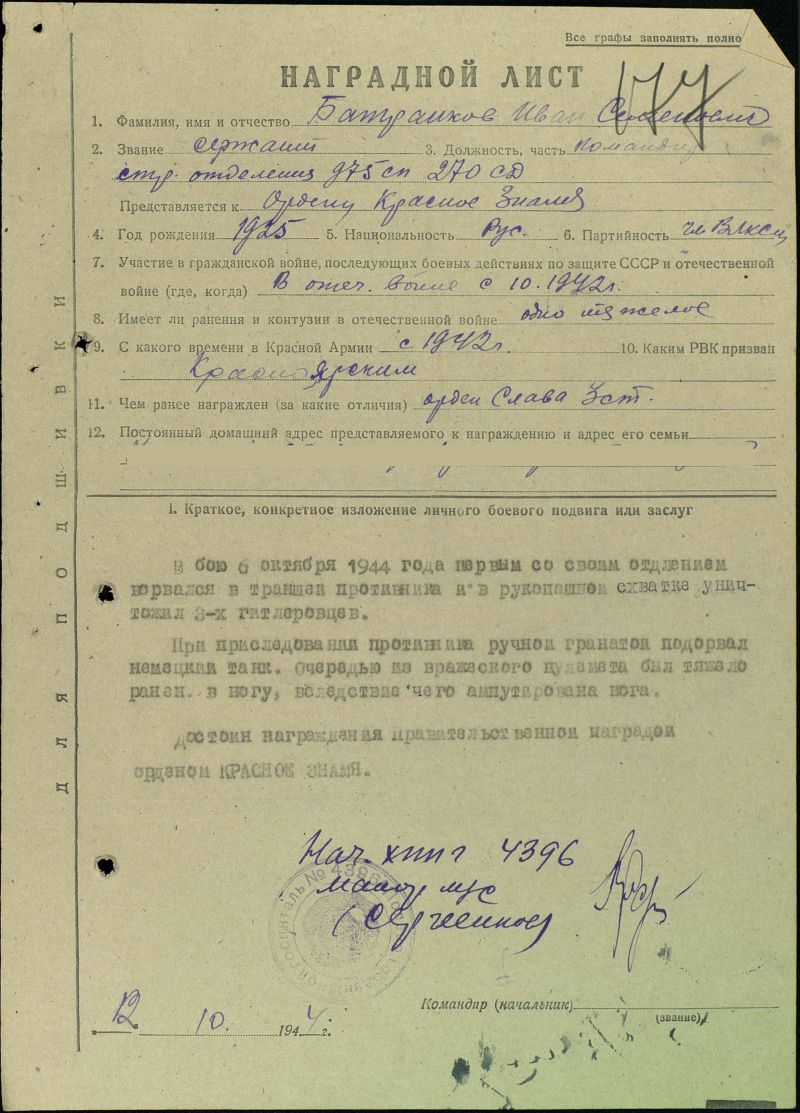 Все графы заполнять полно
НАГРАДНОЙ ЛИСТ
1. Фамилия, имя и отчество Батраков Иван Семенович
2. Звание сержант 3. Должность, часть командир
стр. отделения 975 сп 270 сд
Представляется к Ордену Красное Знамя
4. Год рождения 1925 5. Национальность Рус. 6. Партийность чл ВЛКСМ
7. Участие в гражданской войне, последующих боевых действиях по защите СССР и отечественной
войне (где, когда) В отеч. войне с 10.1942 г.
8. Имеет ли ранения и контузии в отечественной войне одно тяжелое
9. С какого времени в Красной Армии с 1942 г. 10. Каким РВК призван
Красноярским
11. Чем ранее награжден (за какие отличия) орден Слава 3 ст.
12. Постоянный домашний адрес представляемого к награждению и адрес его семьи
1. Краткое, конкретное изложение личного боевого подвига или заслуг
В бою 6 октября 1944 года первым со своим отдлением
ворвался в траншеи противника и в рукопашной схватке унич-
тожил 3-х гитлеровцев.
При приследовании противника ручной гранатой подорвал
немецкий танк. Очередью из вражеского пулемета был тяжело
ранен в ногу, вследствие чего ампутирована нога.
Достоин награждения Правительственной наградой
орденом КРАСНОЕ ЗНАМЯ.
Нач. хппг 4396
майор м/с
Командир (начальник)
(звание)
12 10. 1944 г.
ДЛЯ ПОДШИВКИ